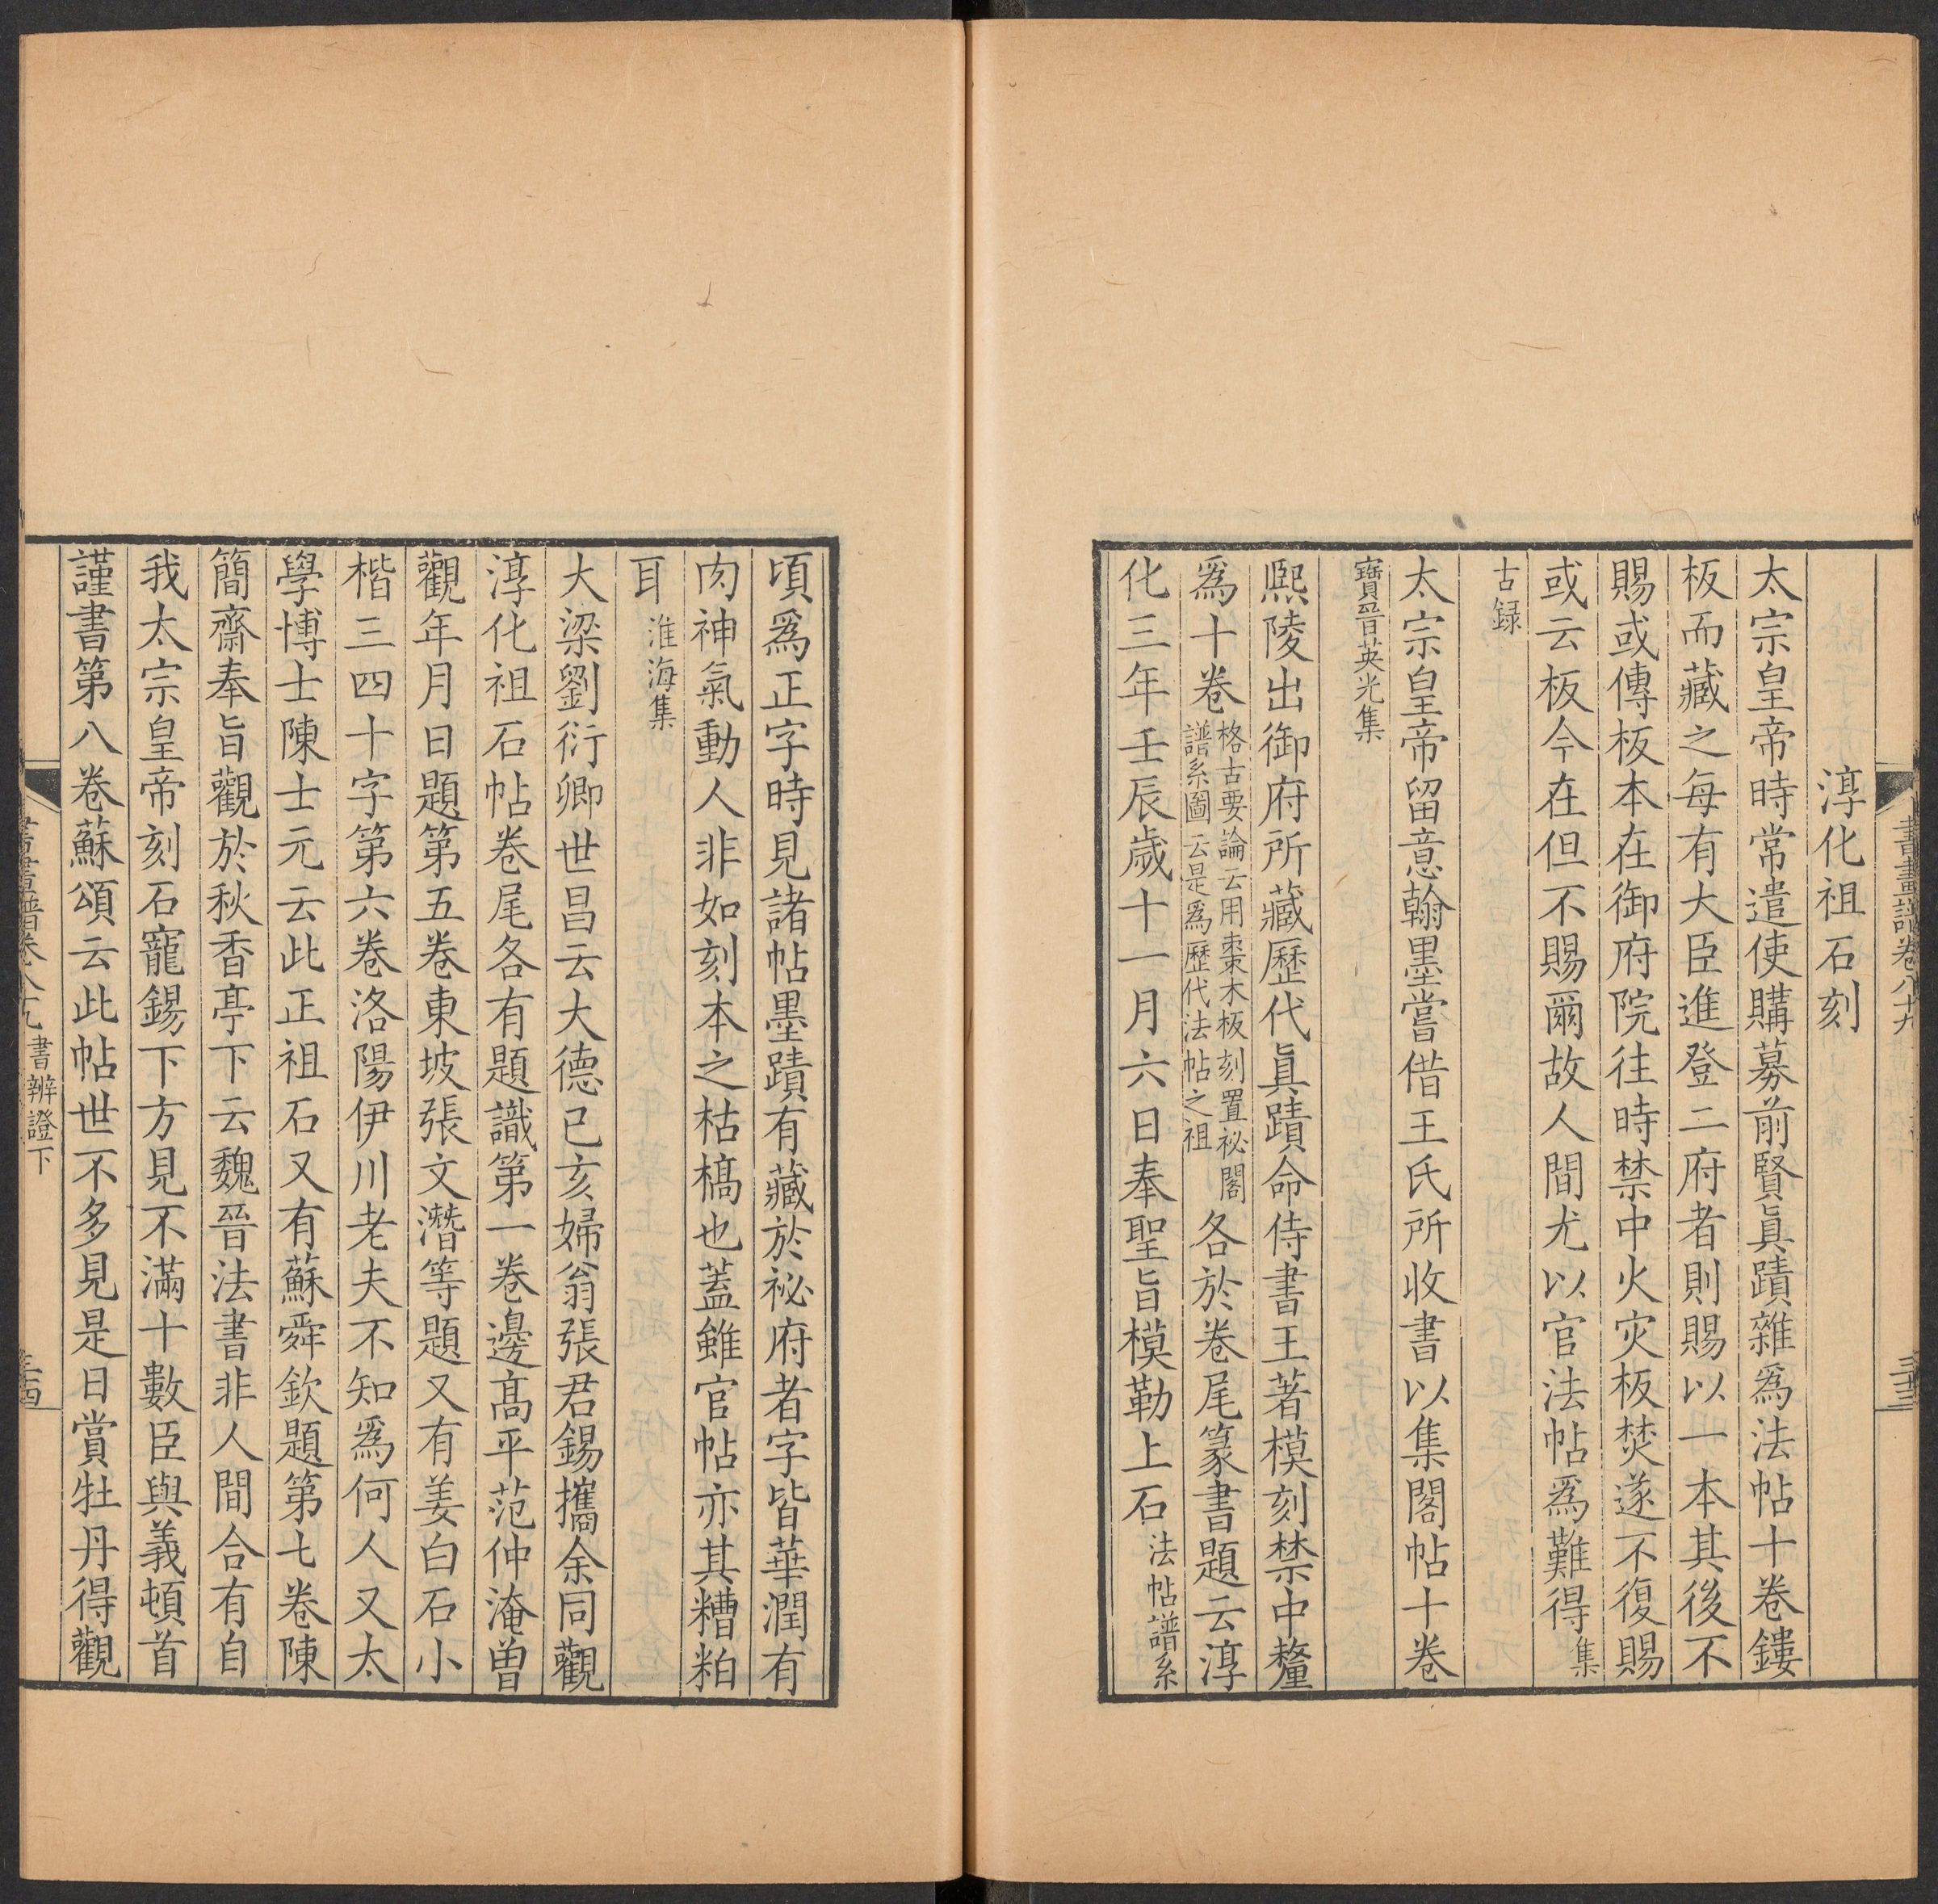 書畫譜卷八十九
三十三
淳化祖石刻
太宗皇帝時常遣使購募前賢眞蹟雜爲法帖十卷鏤
板而藏之每有大臣進登二府者則賜以一本其後不
賜或傳板本在御府院往時禁中火灾板焚遂不復賜
或云板今在但不賜爾故人間尤以官法帖爲難得集
古録
太宗皇帝留意翰墨嘗借王氏所收書以集閣帖十卷
寶晉英光集
熙陵出御府所藏歷代眞蹟命侍書王著模刻禁中釐
爲十卷格古要論云用棗木板刻置祕閣譜系圖云是爲歷代法帖之祖各於卷尾篆書題云淳
化三年壬辰歲十一月六日奉聖旨模勒上石法帖譜系
頃爲正字時見諸帖墨蹟有藏於祕府者字皆華潤有
肉神氣動人非如刻本之枯槁也蓋雖官帖亦其糟粕
耳淮海集
大梁劉衍卿世昌云大德己亥婦翁張君錫攜余同觀
淳化祖石帖卷尾各有題識第一卷邊髙平范仲淹曽
觀年月日題第五卷東坡張文潛等題又有姜白石小
楷三四十字第六卷洛陽伊川老夫不知爲何人又太
學博士陳士元云此正祖石又有蘇舜欽題第七卷陳
簡齋奉旨觀於秋香亭下云魏晉法書非人間合有自
我太宗皇帝刻石寵錫下方見不滿十數臣與義頓首
謹書第八卷蘇頌云此帖世不多見是日賞牡丹得觀
書畫譜卷八十九 書辨證下
三十四